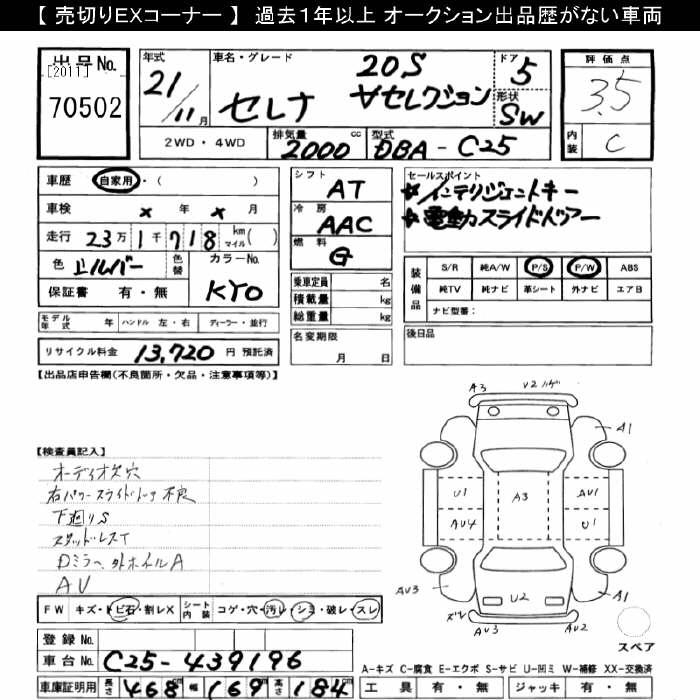 【 売切りEXコーナー 】 過去1年以上 オークション出品歴がない車両
出品No.
[2011]
70502
年式
21/11月
車名・グレード
セレナ
20S
Vセレクション
ドア
5
形状
SW
評価点
3.5
内装
C
2WD・4WD
排気量
2000
cc
型式
DBA-C25
車歴
自家用・( )
車検 × 年 × 月
走行 23万1千718 km マイル( )
色 シルバー
色替
カラーNo.
KYO
保証書 有・無
シフト
AT
冷房
AAC
燃料
G
乗車定員 名
積載量 kg
総重量 kg
セールスポイント
★インテリジェントキー
★電動スライドドアー
装備品
S/R 純A/W P/S P/W ABS
純TV 純ナビ 革シート 外ナビ エアB
ナビ型番:
モデル年式 年 ハンドル 左・右 ディーラー・並行
リサイクル料金 13,720 円 預託済
名変期限
月 日
後日品
【出品店申告欄(不良箇所・欠品・注意事項等)】
【検査員記入】
オーディオ欠穴
右パワースライドドア不良
下廻りS
スタッドレスT
Dミラー、外ホイルA
AU
A3 U2 ハゲ
A1
U1 A3 AU1
AU4 U1
AU3 U2 A1
ズレ AU3 AU2
スペア
FW キズ・トビ石・割レX シート内装 コゲ・穴・汚レ・シミ・破レ・スレ
登録No.
車台No. C25-439196
車庫証明用 長さ 468cm 幅 169cm 高さ 184cm
A-キズ C-腐食 E-エクボ S-サビ U-凹ミ W-補修 XX-交換済
工具 有・無 ジャッキ 有・無